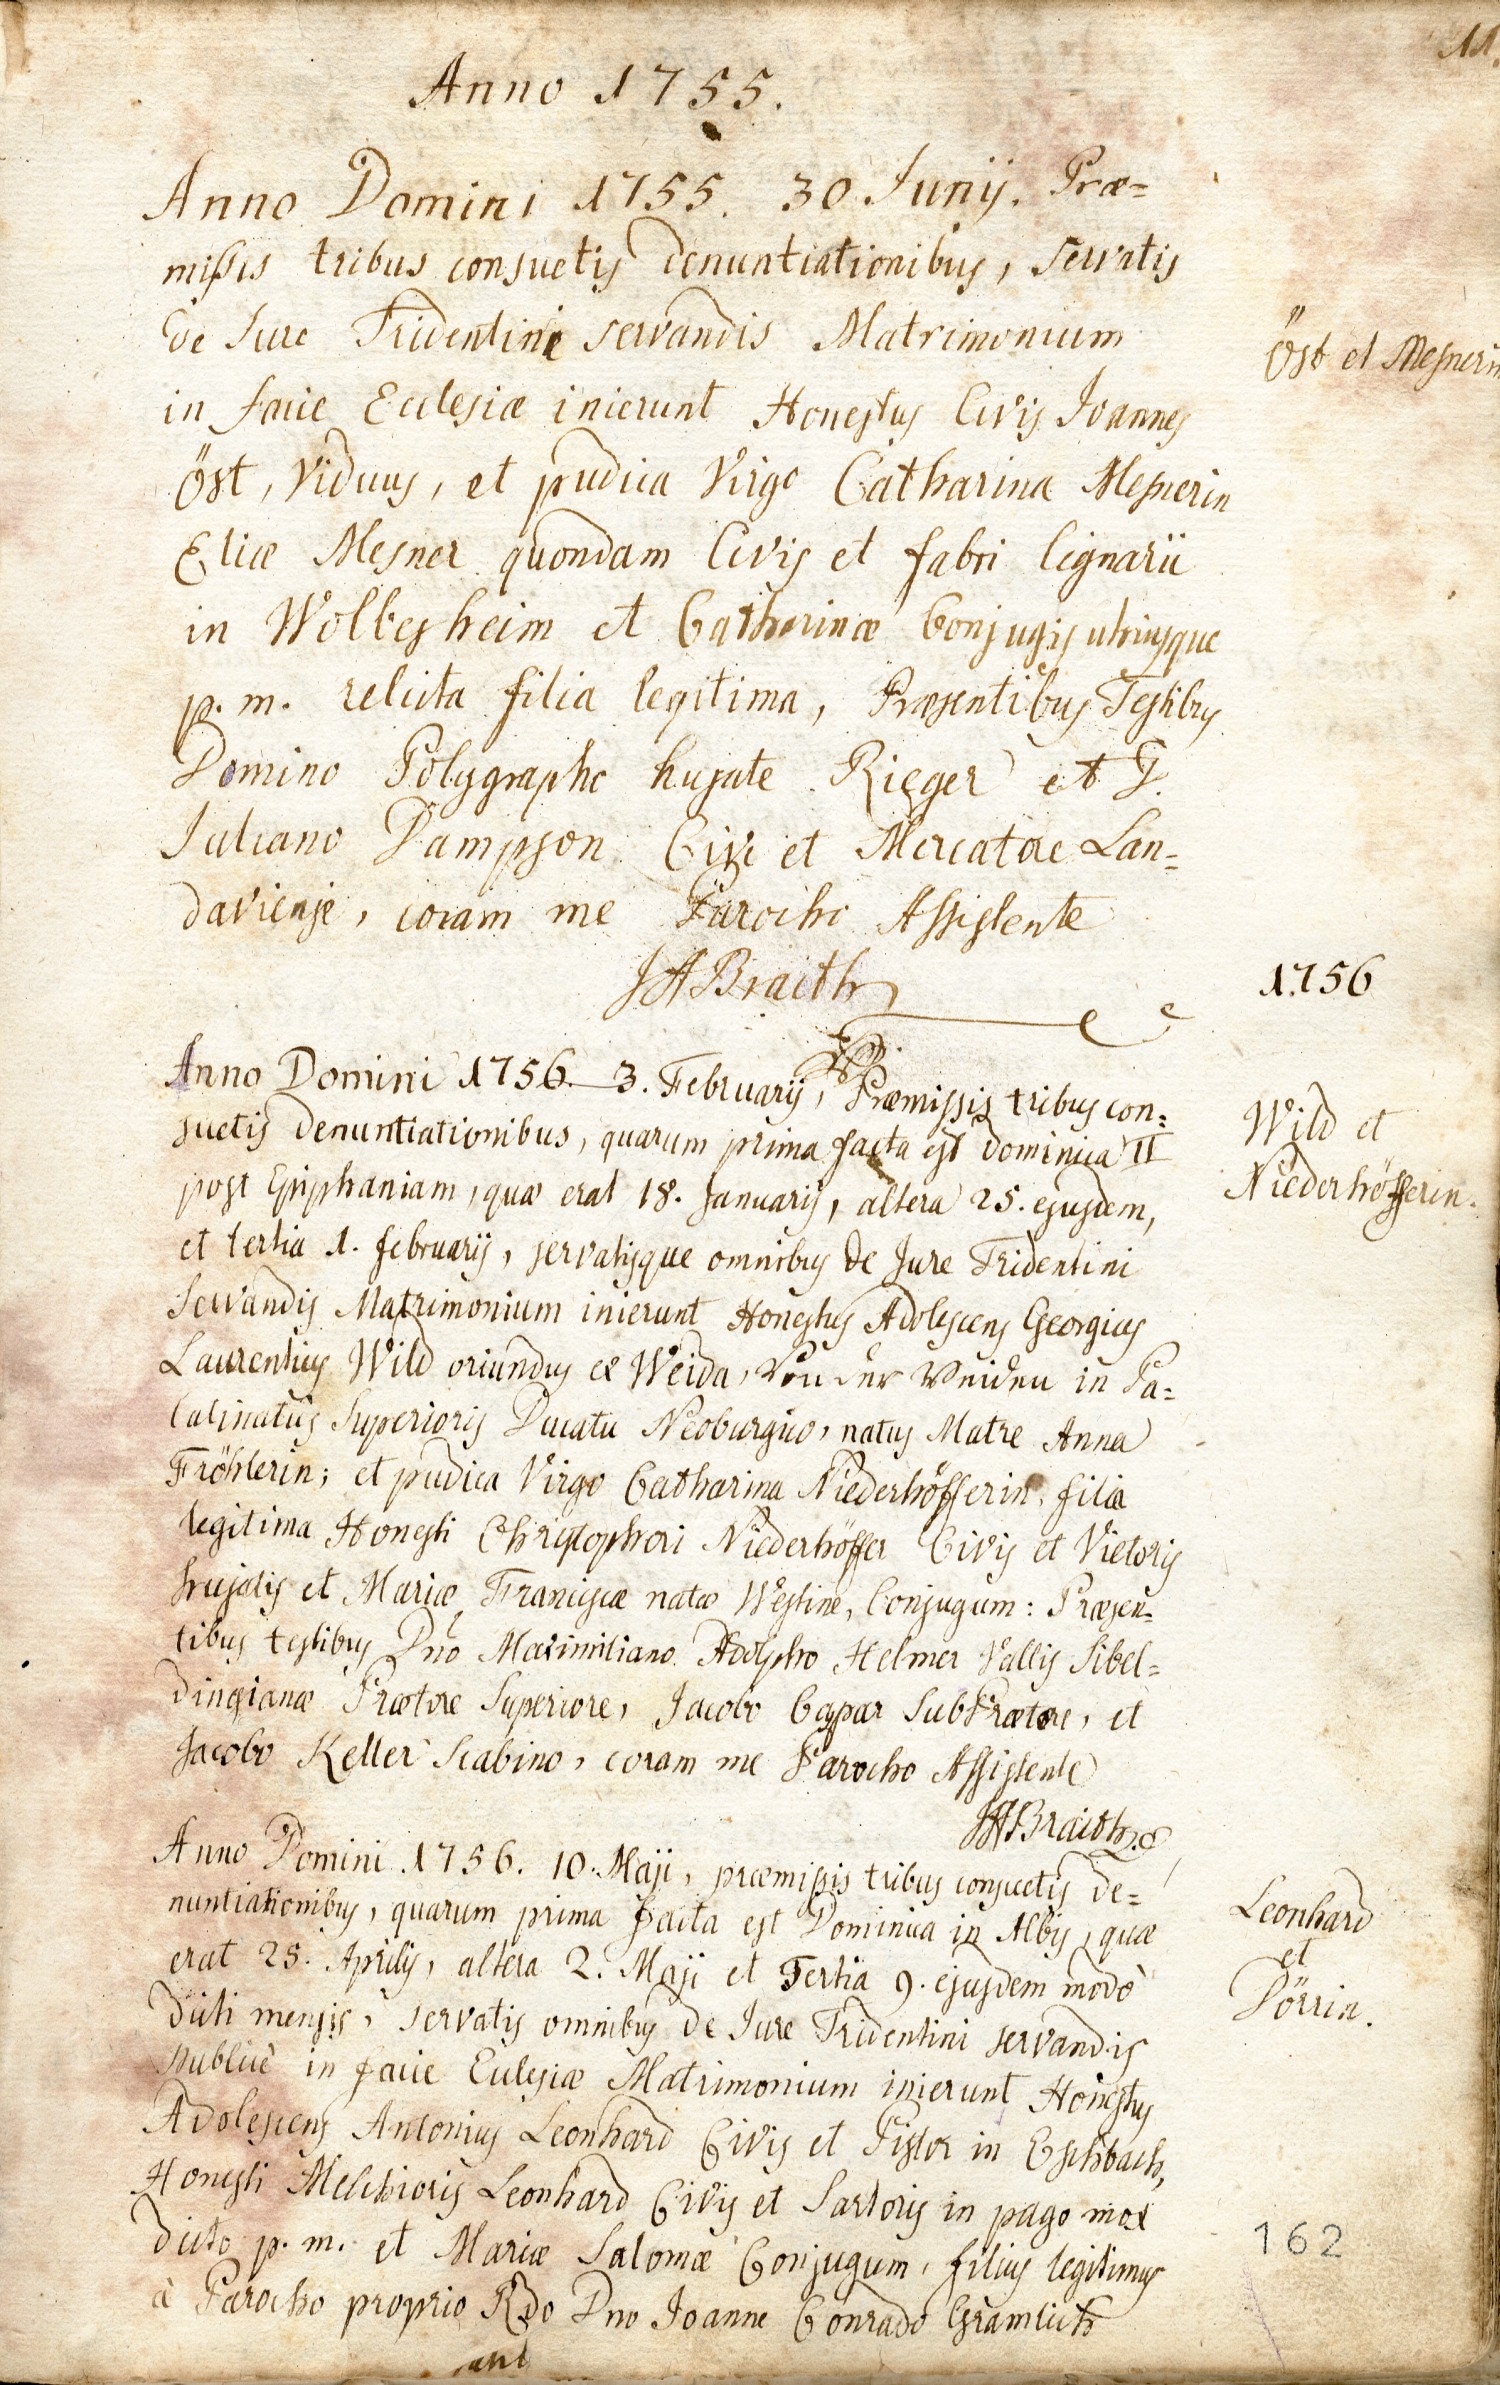 11.
Anno 1755.
Anno Domini 1755. 30 Junij. Præ=
missis tribus consuetis denuntiationibus, servatis
de Jure Tridentini servandis Matrimonium
in facie Ecclesiæ inierunt Honestus Civis Joannes
Öst, Viduus, et pudica Virgo Catharina Mesnerin
Eliæ Mesner quondam Civis et fabri lignarii
in Wolbesheim et Catharinæ Conjugis utriusque
p. m. relicta filia legitima, Præsentibus Testibus
Domino Polygrapho hujate Rieger et
Juliano Dampson Cive et Mercatore Lan=
daviense, coram me Parocho Assistente
JABraith
Öst et Mesnerin
1756
Anno Domini 1756. 3. Februarij, Præmissis tribus con=
suetis denuntiationibus, quarum prima facta est dominica II
post Epiphaniam, quæ erat 18. Januarij, altera 25. ejusdem,
et tertia 1. februarij, servatisque omnibus de Jure Tridentini
servandis Matrimonium inierunt Honestus Adolescens Georgius
Laurentius Wild oriundus ex Weida, Von der Weiden in Pa=
latinatus Superioris Ducatu Neoburgico, natus Matre Anna
Fröhlerin; et pudica Virgo Catharina Niederhöfferin, filia
legitima Honesti Christophori Niederhöffer Civis et Vietoris
hujatis et Mariæ Franciscæ natæ Westine, Conjugum: Præsen=
tibus testibus Dno Maximiliano Adolpho Helmer Vallis Sibel=
dingianæ Prætore Superiore, Jacobo Caspar SubPrætore, et
Jacobo Keller Scabino, coram me Parocho Assistente
JABraith
Wild et
Niederhöfferin.
Anno Domini 1756. 10. Maji, præmissis tribus consuetis de=
nuntiationibus, quarum prima facta est Dominica in Albis, quæ
erat 25. Aprilis, altera 2. Maji et Tertia 9. ejusdem modò
dicti mensis, servatis omnibus de Jure Tridentini servandis
publicè in facie Ecclesiæ Matrimonium inierunt Honestus
Adolescens Antonius Leonhard Civis et Pistor in Eschbach,
Honesti Melchioris Leonhard Civis et Sartoris in pago mox
dicto p. m. et Mariæ Salomæ Conjugum, filius legitimus
à Parocho proprio Rdo Dno Joanne Conrado Gramlich
Leonhard
et
Dörrin.
162